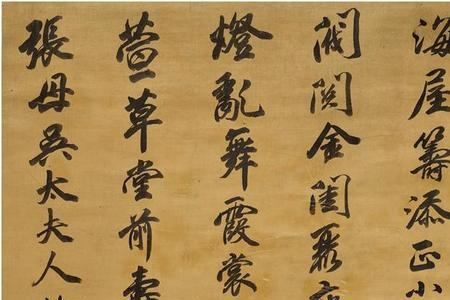 海屋籌添正小
閥閱金閨聚
燈亂舞霞裳
萱草堂前壽
張母吳太夫人